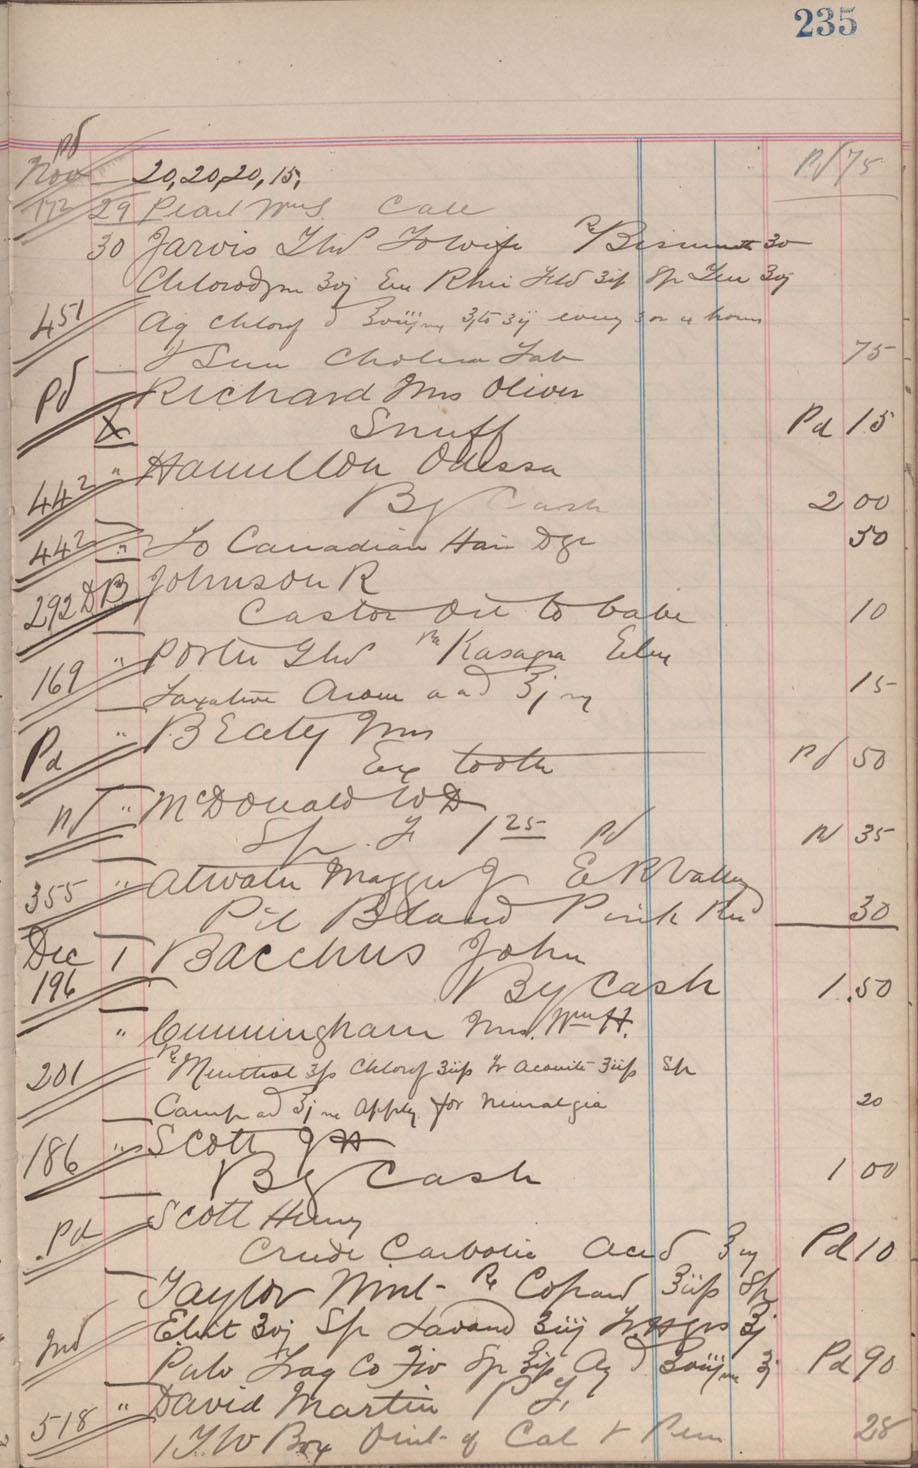 235
pd
Nov 20, 20, 20, 15, Pd 75
172 29 Pearl Wm S. Call
30 Jarvis Thos To wife Rx Bismuth 3o
Chlorodyne 3vj Em Rhei 3iiſs Sp 3vj
451 Aq Chlorof 3viij 3j to 3ij every 3 or 4 hours
& Sun Cholera Tab 75
Pd Richard Mrs Oliver
X Snuff Pd 15
442 " Hamilton Odessa
By Cash 2 00
442 " To Canadian Hair Dye 50
292 DB Johnson R
Castor Oil to babe 10
169 " Porter Thos Rx Kasagra
Laxative Arom aa d 3j 15
Pd " Beaty Mrs
Ex tooth Pd 50
" McDonald W D
Sp. F 1 25 Pd Pd 35
355 " Atwater Maggie J E R Valley
Pil Blaud Pink 30
Dec 1 Bacchus John
196 By Cash 1.50
" Cunningham Mrs. Wm H.
201 Rx Menthol 3ſs Chlorof 3iiſs Tr Aconite 3iiſs Sp
Camp ad 3j Apply for Neuralgia 20
186 " Scott J H
By Cash 1 00
Pd Scott Henry
Crude Carbolic Acid Pd 10
Taylor Wm L Rx Copavi 3iiſs Sp
Ind 3vj Sp Lavand 3iij 3j
Pulv Trag Co Sp 3iſs Aq d 3viij Pd 90
518 " David Martin P T,
1 T.W Box Oint of Cal & 28